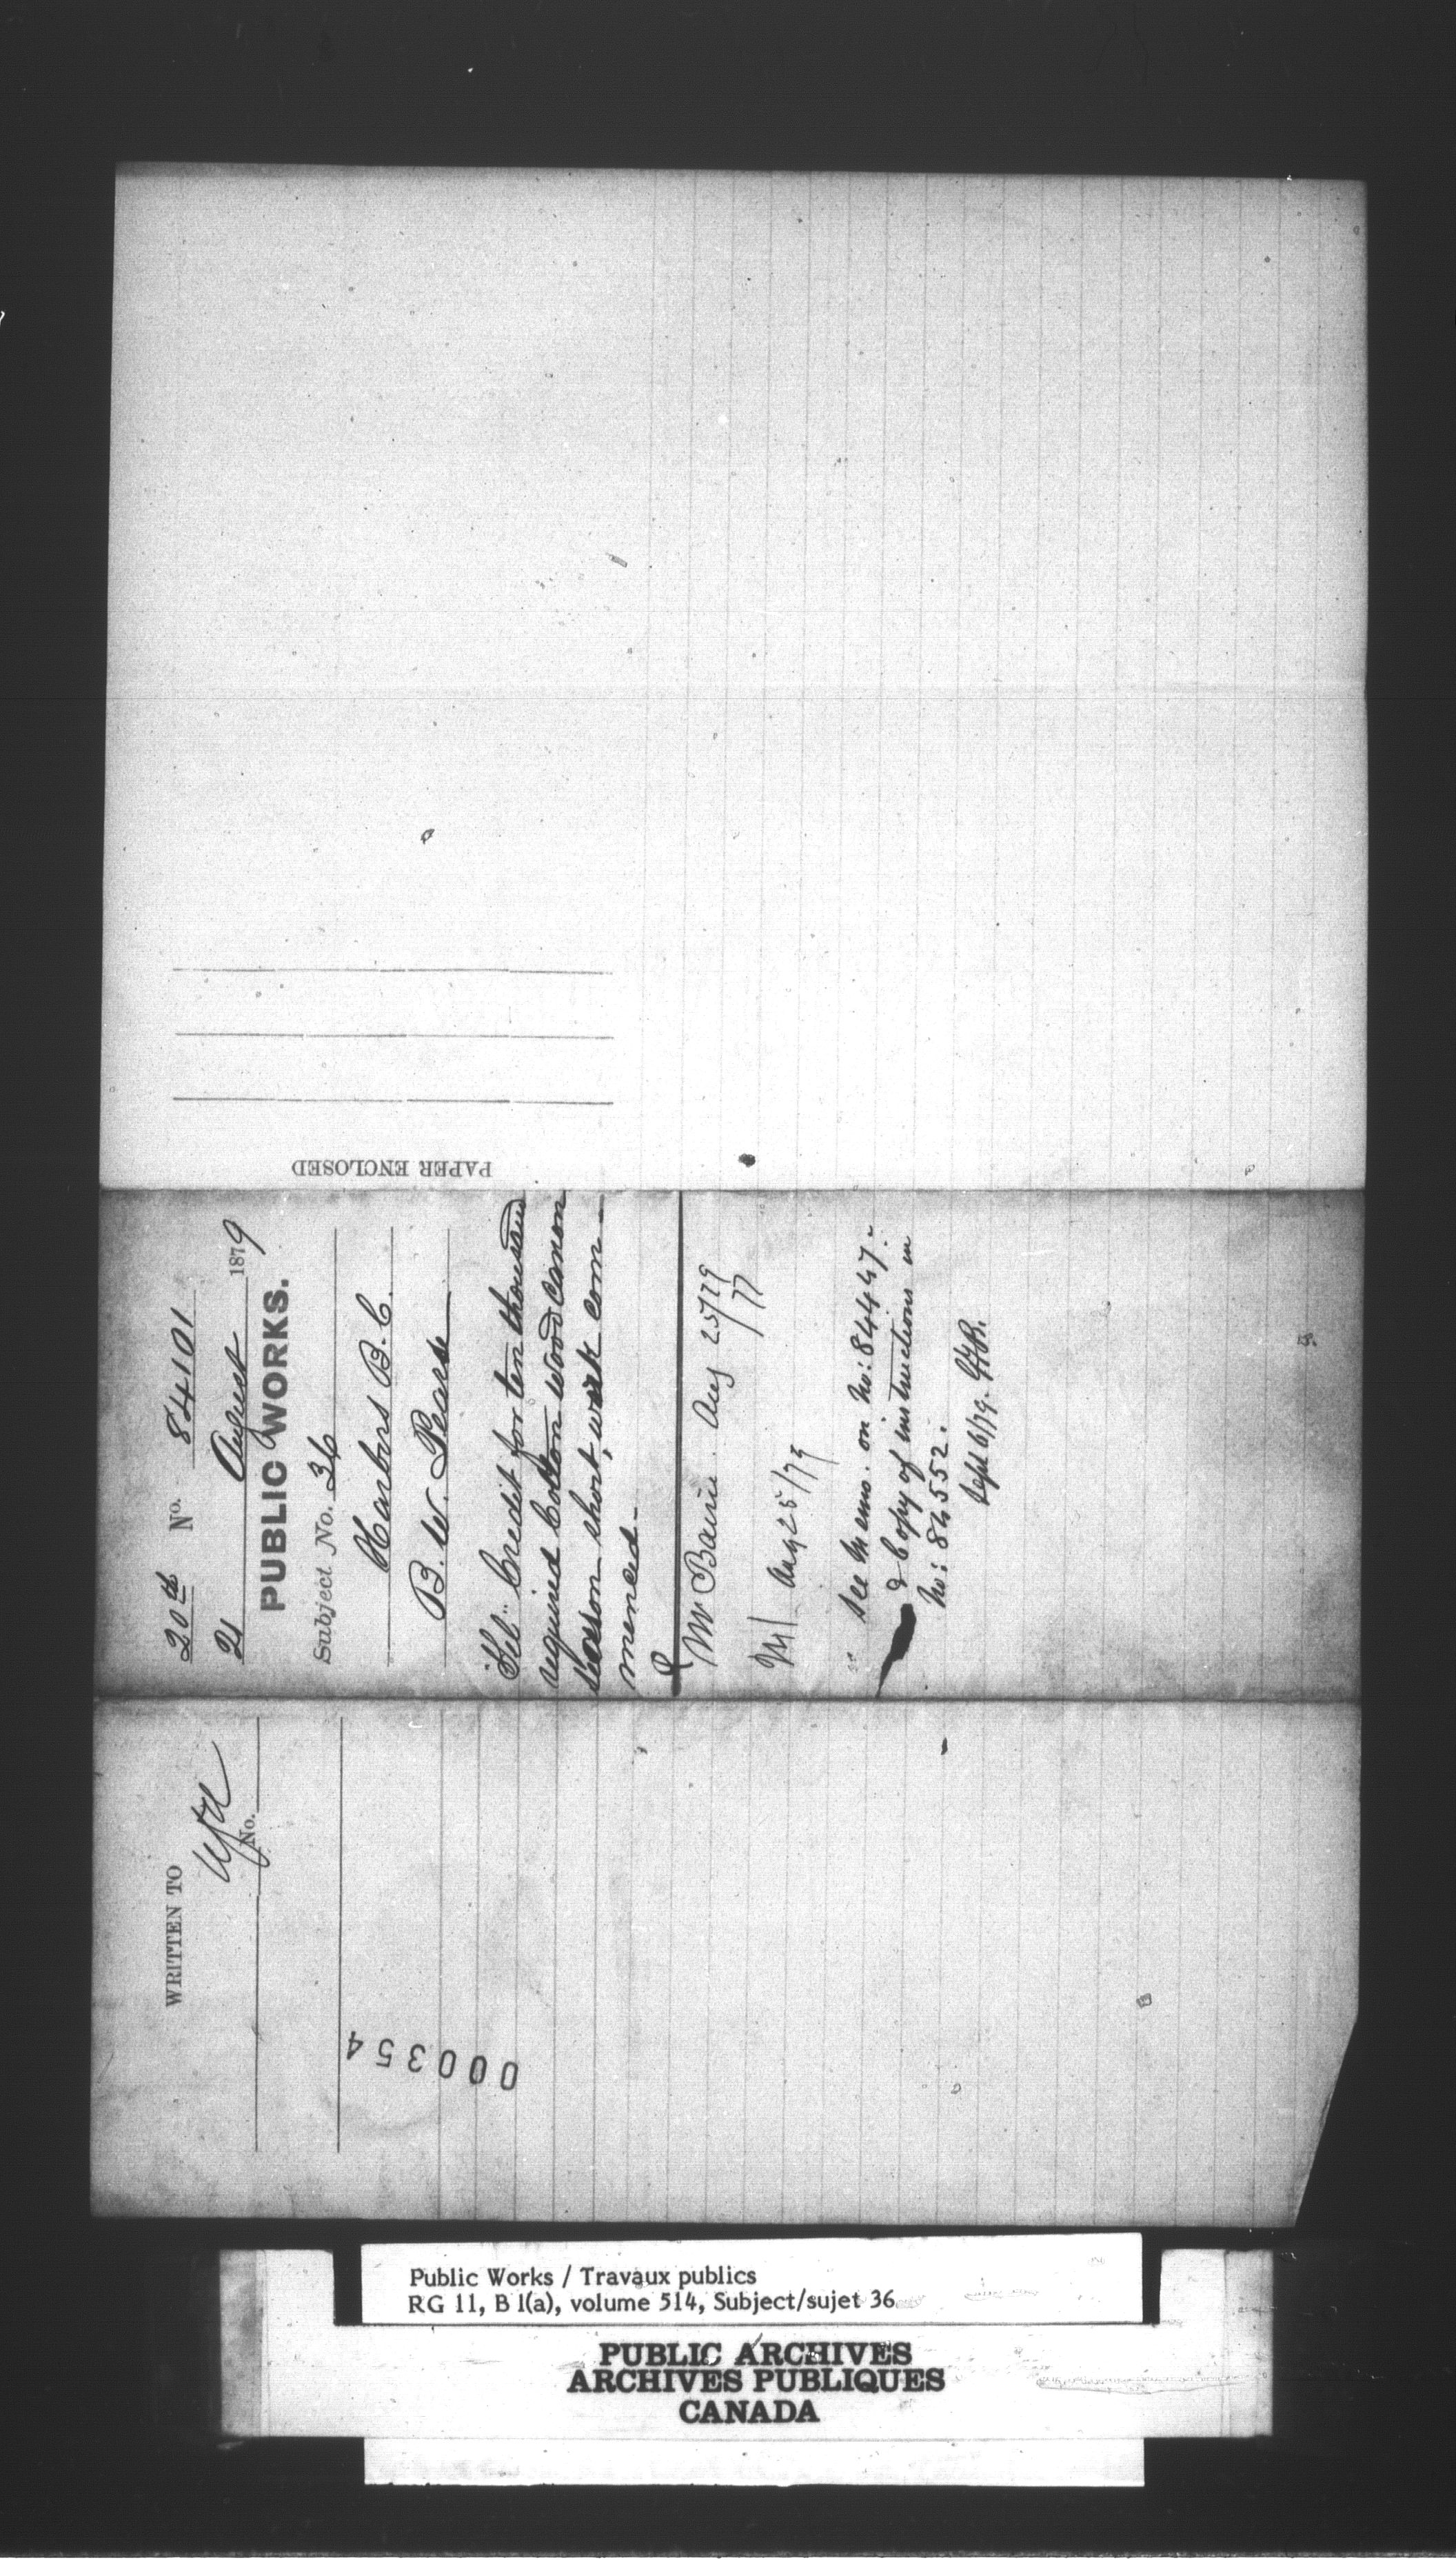 PAPER ENCLOSED
20th No. 84101
21 August 1879
PUBLIC WORKS.
Subject No. 36
Harbors B.C.
B. W. Pearse
Tel: Credit for ten thousand
required Cotton Wood Canon
Season short, work com-
menced -
Mr Baine Aug 25/79
Aug 25/79
See Memo. on No: 84447.
& Copy of instructions in
No: 84552.
Sept 6/79. G.F.B.
WRITTEN TO
No.
000354
Public Works / Travaux publics
RG 11, B 1(a), volume 514, Subject/sujet 36
PUBLIC ARCHIVES
ARCHIVES PUBLIQUES
CANADA